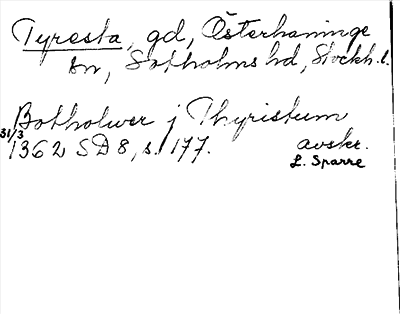 Tyresta, gd, Österhaninge
sn, Sotholms hd, Stockh. l.
Botholwer j Thyristum
31/3 1362 SD 8, s. 177. avskr.
L. Sparre